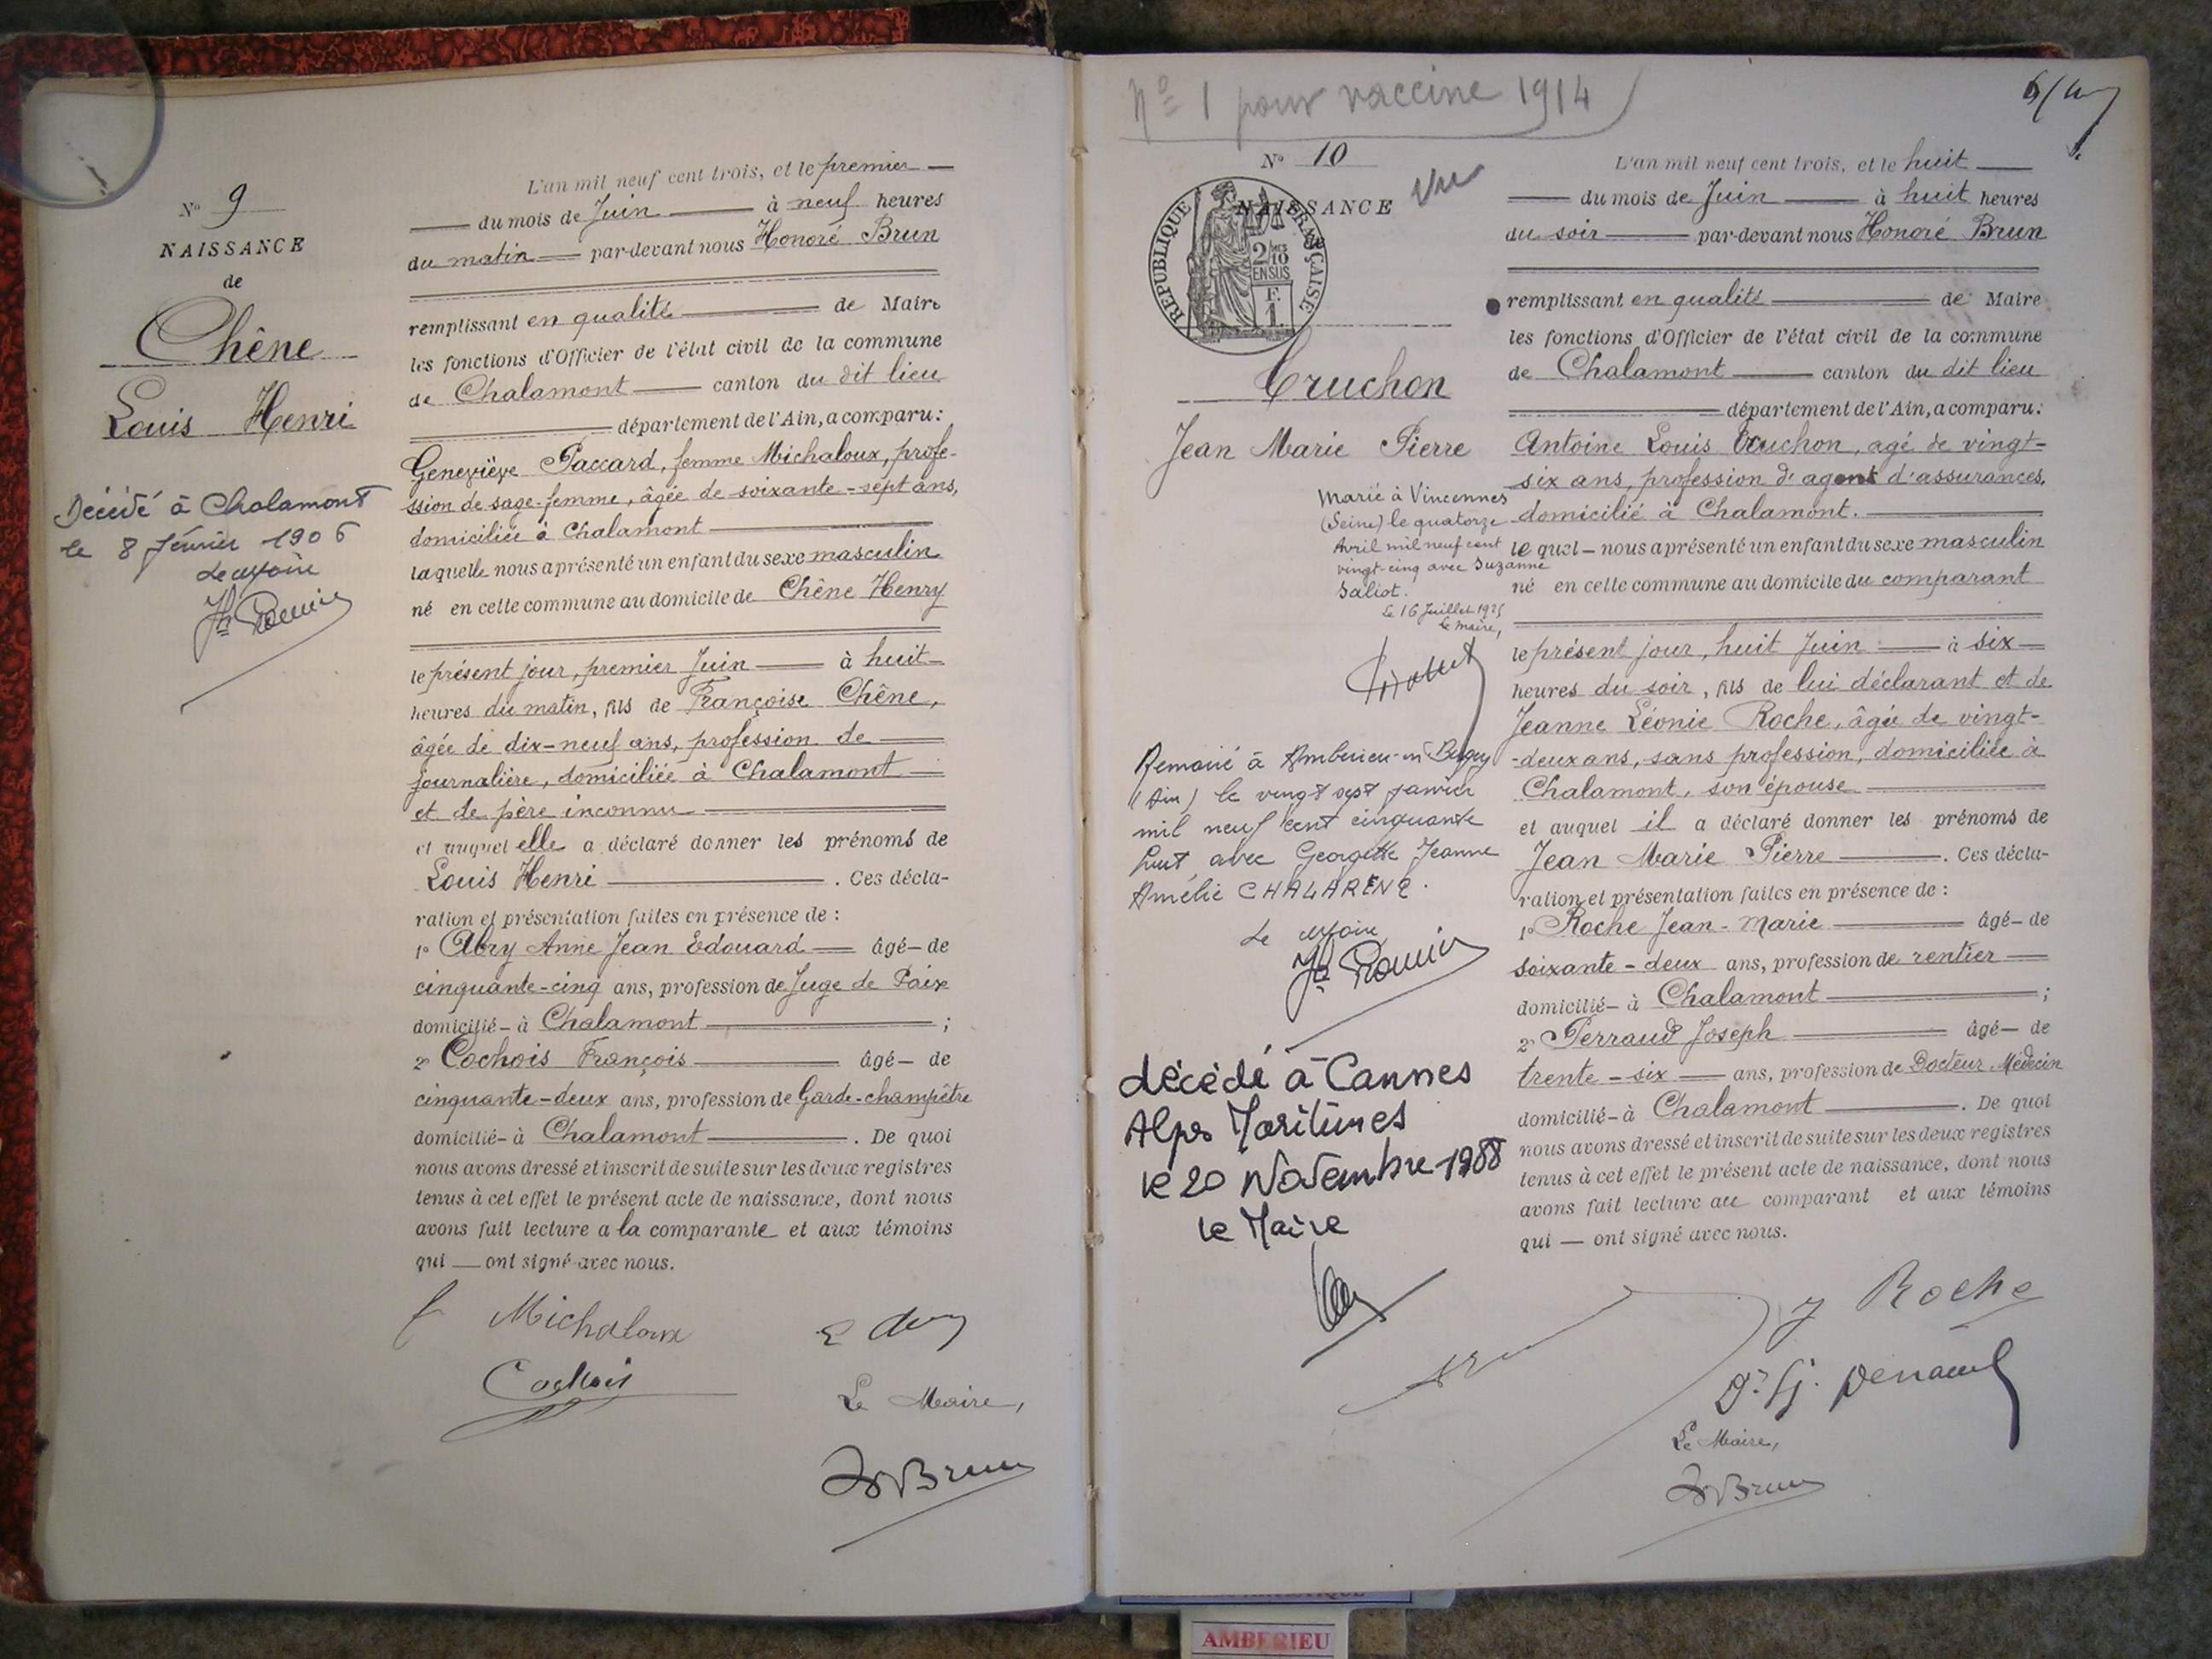 Nº 9
NAISSANCE
de
Chêne
Louis Henri
Décédé à Chalamont
le 8 Février 1906
Le Maire
L'an mil neuf cent trois, et le premier
du mois de Juin à neuf heures
du matin par-devant nous Honoré Brun
remplissant en qualité de Maire
les fonctions d'Officier de l'état civil de la commune
de Chalamont canton du dit lieu
département de l'Ain, a comparu :
Geneviève Paccard, femme Michaloux, profe-
ssion de sage-femme, âgée de soixante-sept ans,
domiciliée à Chalamont
laquelle nous a présenté un enfant du sexe masculin
né en cette commune au domicile de Chêne Henry
le présent jour, premier Juin à huit
heures du matin, fils de Françoise Chêne,
âgée de dix-neuf ans, profession de
journalière, domiciliée à Chalamont
et de père inconnu
et auquel elle a déclaré donner les prénoms de
Louis Henri . Ces décla-
ration et présentation faites en présence de :
1º Abry Anne Jean Edouard âgé de
cinquante-cinq ans, profession de Juge de Paix
domicilié à Chalamont ;
2º Cochois François âgé de
cinquante-deux ans, profession de Garde-champêtre
domicilié à Chalamont . De quoi
nous avons dressé et inscrit de suite sur les deux registres
tenus à cet effet le présent acte de naissance, dont nous
avons fait lecture a la comparante et aux témoins
qui ont signé avec nous.
f Michaloux
Cochois
Le Maire,
HBrun
Nº 1 pour vaccine 1914
Nº 10
Vu
NAISSANCE
REPUBLIQUE FRANÇAISE
2/10
EN SUS
F.
1.
Cruchon
Jean Marie Pierre
Marié à Vincennes
(Seine) le quatorze
Avril mil neuf cent
vingt-cinq avec Suzanne
Saliot.
Le 16 Juillet 1925
Le Maire,
Remarié à Ambérieu-en-Bugey
(Ain) le vingt sept janvier
mil neuf cent cinquante
huit avec Georgette Jeanne
Amélie
Le Maire
décédé à Cannes
Alpes Maritimes
le 20 Novembre 1988
le Maire
L'an mil neuf cent trois, et le huit
du mois de Juin à huit heures
du soir par-devant nous Honoré Brun
remplissant en qualité de Maire
les fonctions d'Officier de l'état civil de la commune
de Chalamont canton du dit lieu
département de l'Ain, a comparu :
Antoine Louis Cruchon, agé de vingt-
six ans, profession d'agent d'assurances,
domicilié à Chalamont.
le quel nous a présenté un enfant du sexe masculin
né en cette commune au domicile du comparant
le présent jour, huit Juin à six
heures du soir, fils de lui déclarant et de
Jeanne Léonie Roche, âgée de vingt-
-deux ans, sans profession, domiciliée à
Chalamont, son épouse
et auquel il a déclaré donner les prénoms de
Jean Marie Pierre . Ces décla-
ration et présentation faites en présence de :
1º Roche Jean-Marie âgé de
soixante-deux ans, profession de rentier
domicilié à Chalamont ;
2º Perraud Joseph âgé de
trente-six ans, profession de Docteur Médecin
domicilié à Chalamont . De quoi
nous avons dressé et inscrit de suite sur les deux registres
tenus à cet effet le présent acte de naissance, dont nous
avons fait lecture au comparant et aux témoins
qui ont signé avec nous.
J Roche
Le Maire,
HBrun
AMBERIEU